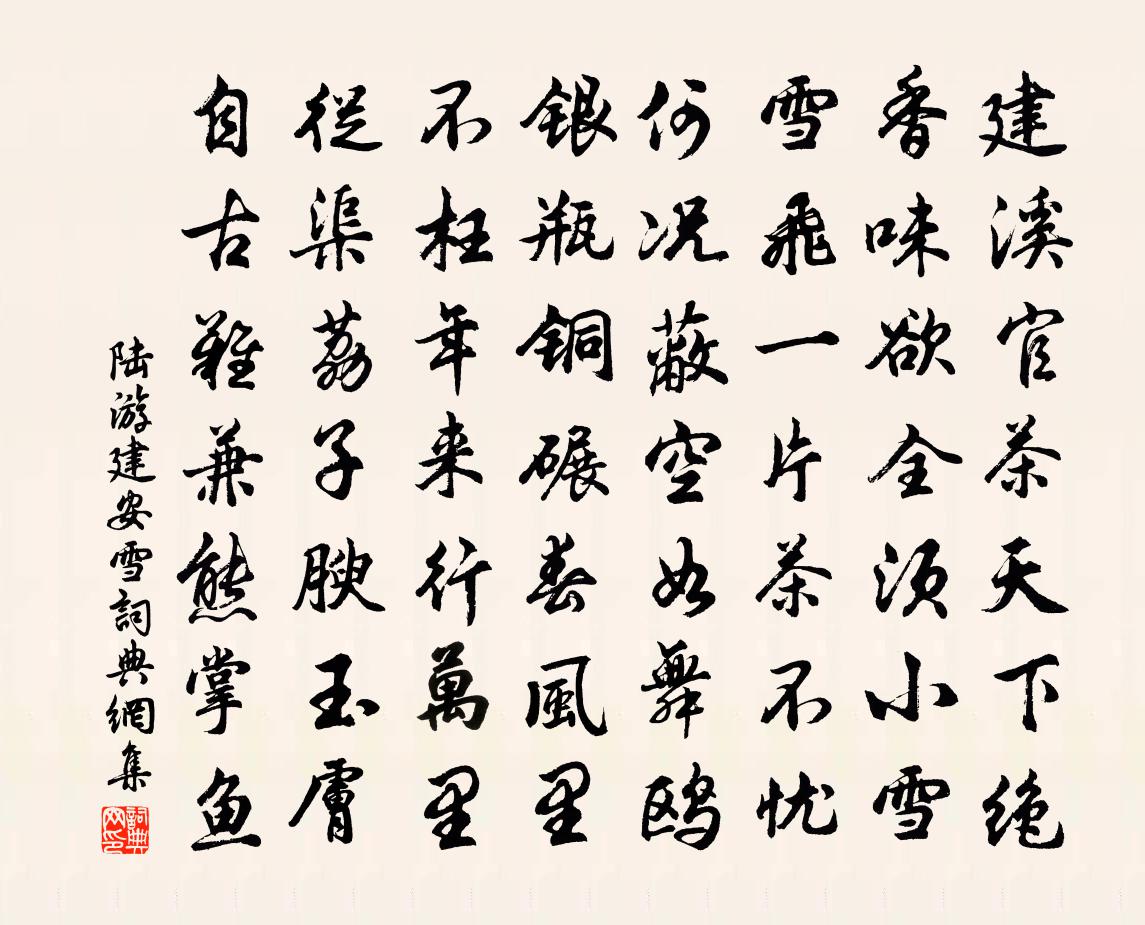 建溪官茶天下绝
香味欲全须小雪
雪飛一片茶不忧
何况蔽空如舞鸥
銀瓶銅碾春風里
不枉年来行萬里
從渠荔子腴玉膚
自古難兼熊掌魚
陆游建安雪詞典網集
詞典網印